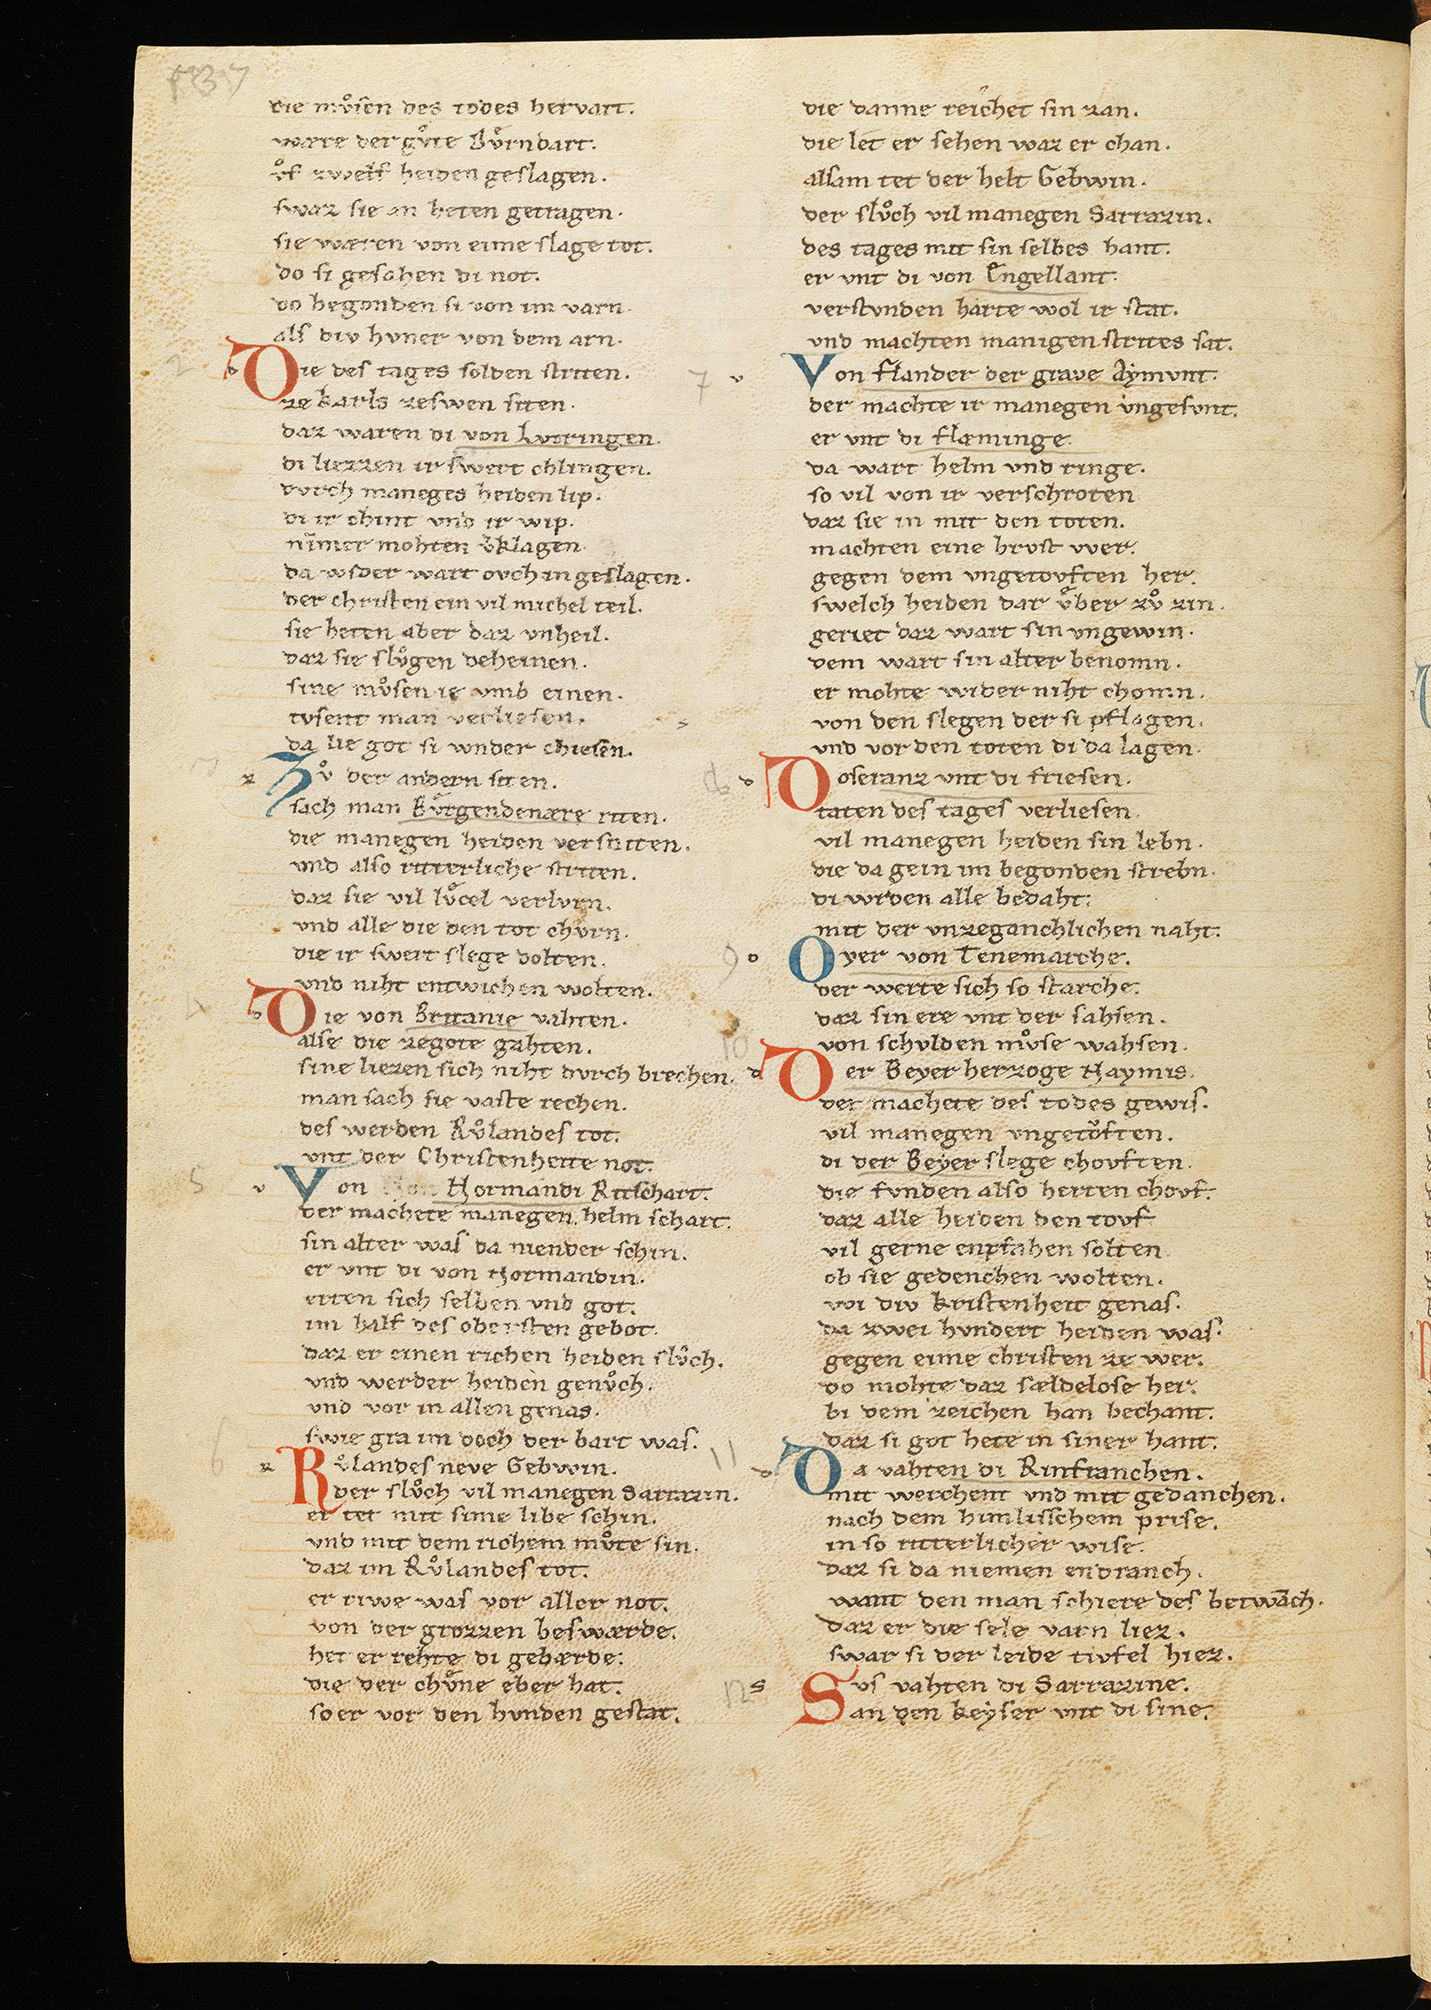 die mv̊sen des todes hervart.
wære der gv̊te Bv̊rndart.
v̊f zwelf heiden geslagen.
swaz sie an heten getragen.
sie wæren von eime slage tot.
do si gesahen di not.
do begonden si von im varn.
als div hvner von dem arn.
Die des tages solden striten.
ze karls zeswen siten.
daz waren di von Lutringen.
di liezzen ir swert chlingen.
dvrch maneges heiden lip.
di ir chint vnd ir wip.
nimer mohten v̊klagen.
da wider wart ovch in geslagen.
der christen ein vil michel teil.
sie heten aber daz vnheil.
daz sie slv̊gen deheinen.
sine mv̊sen ie vmb einen.
tvsent man verliesen.
da lie got si wnder chiesen.
Zv̊ der andern siten.
sach man Bv̊rgendenære riten.
die manegen heiden versniten.
vnd also ritterliche striten.
daz sie vil lv̊cel verlvrn.
vnd alle die den tot chvrn.
die ir swert slege dolten.
vnd niht entwichen wolten.
Die von Britanie vahten.
alse die zegote gahten.
sine liezen sich niht dvrch brechen.
man sach sie vaste rechen.
des werden Rv̊landes tot.
vnt der Christenheite not.
Von Normandi Ritschart.
der machete manegen helm schart.
sin alter was da niender schin.
er vnt di von Normandin.
erten sich selben vnd got.
im half des obersten gebot.
daz er einen richen heiden slv̊ch.
vnd werder heiden genv̊ch.
vnd vor in allen genas.
swie gra im doch der bart was.
Rv̊landes neve Gebwin.
der slv̊ch vil manegen Sarrazin.
er tet mit sime libe schin.
vnd mit dem richem mv̊te sin.
daz im Rv̊landes tot.
er riwe was vor aller not.
von der grozzen beswærde.
het er rehte di gebærde.
die der chv̊ne eber hat.
so er vor den hvnden gestat.
die danne reichet sin zan.
die let er sehen waz er chan.
alsam tet der helt Gebwin.
der slv̊ch vil manegen Sarrazin.
des tages mit sin selbes hant.
er vnt di von Engellant.
verstvnden harte wol ir stat.
vnd machten manigen strites sat.
Von Flander der grave Aymvnt.
der machte ir manegen vngesvnt.
er vnt di Flæminge.
da wart helm vnd ringe.
so vil von ir verschroten
daz sie in mit den toten.
machten eine brvst wer.
gegen dem vngetovften her.
swelch heiden dar v̊ber zv̊ zin.
geriet daz wart sin vngewin.
dem wart sin alter benomn.
er mohte wider niht chomn.
von den slegen der si pflagen.
vnd vor den toten di da lagen.
Doseranz vnt di friesen.
taten des tages verliesen.
vil manegen heiden sin lebn.
die da gein im begonden strebn.
di wrden alle bedaht.
mit der vnzeganchlichen naht.
Oyer von Tenemarche.
der werte sich so starche.
daz sin ere vnt der sahsen.
von schvlden mv̊se wahsen.
Der Beyer herzoge Naymis.
der machete des todes gewis.
vil manegen vngetovften.
di der Beyer slege chovften.
die fvnden also herten chovf.
daz alle heiden den tovf
vil gerne enpfahen solten
ob sie gedenchen wolten.
wi div kristenheit genas.
da zwei hvndert heiden was.
gegen eime christen ze wer.
do mohte daz sældelose her.
bi dem zeichen han bechant.
daz si got hete in siner hant.
Da vahten di Rinfranchen.
mit werchent vnd mit gedanchen.
nach dem himlisschem prise.
in so ritterlicher wise.
daz si da niemen endranch.
want den man schiere des betwāch.
daz er die sele varn liez.
swar si der leide tivfel hiez.
Svs vahten di Sarrazine.
an den keyser vnt di sine.